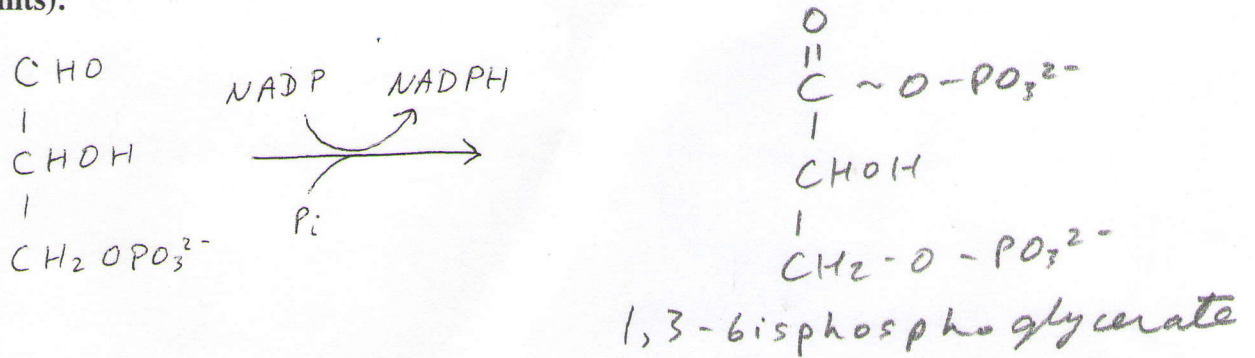 nts).
CHO
|
CHOH
|
CH₂ OPO₃²⁻
NADP NADPH
Pi
O
||
C ~ O - PO₃²⁻
|
CHOH
|
CH₂ - O - PO₃²⁻
1,3-bisphosphoglycerate